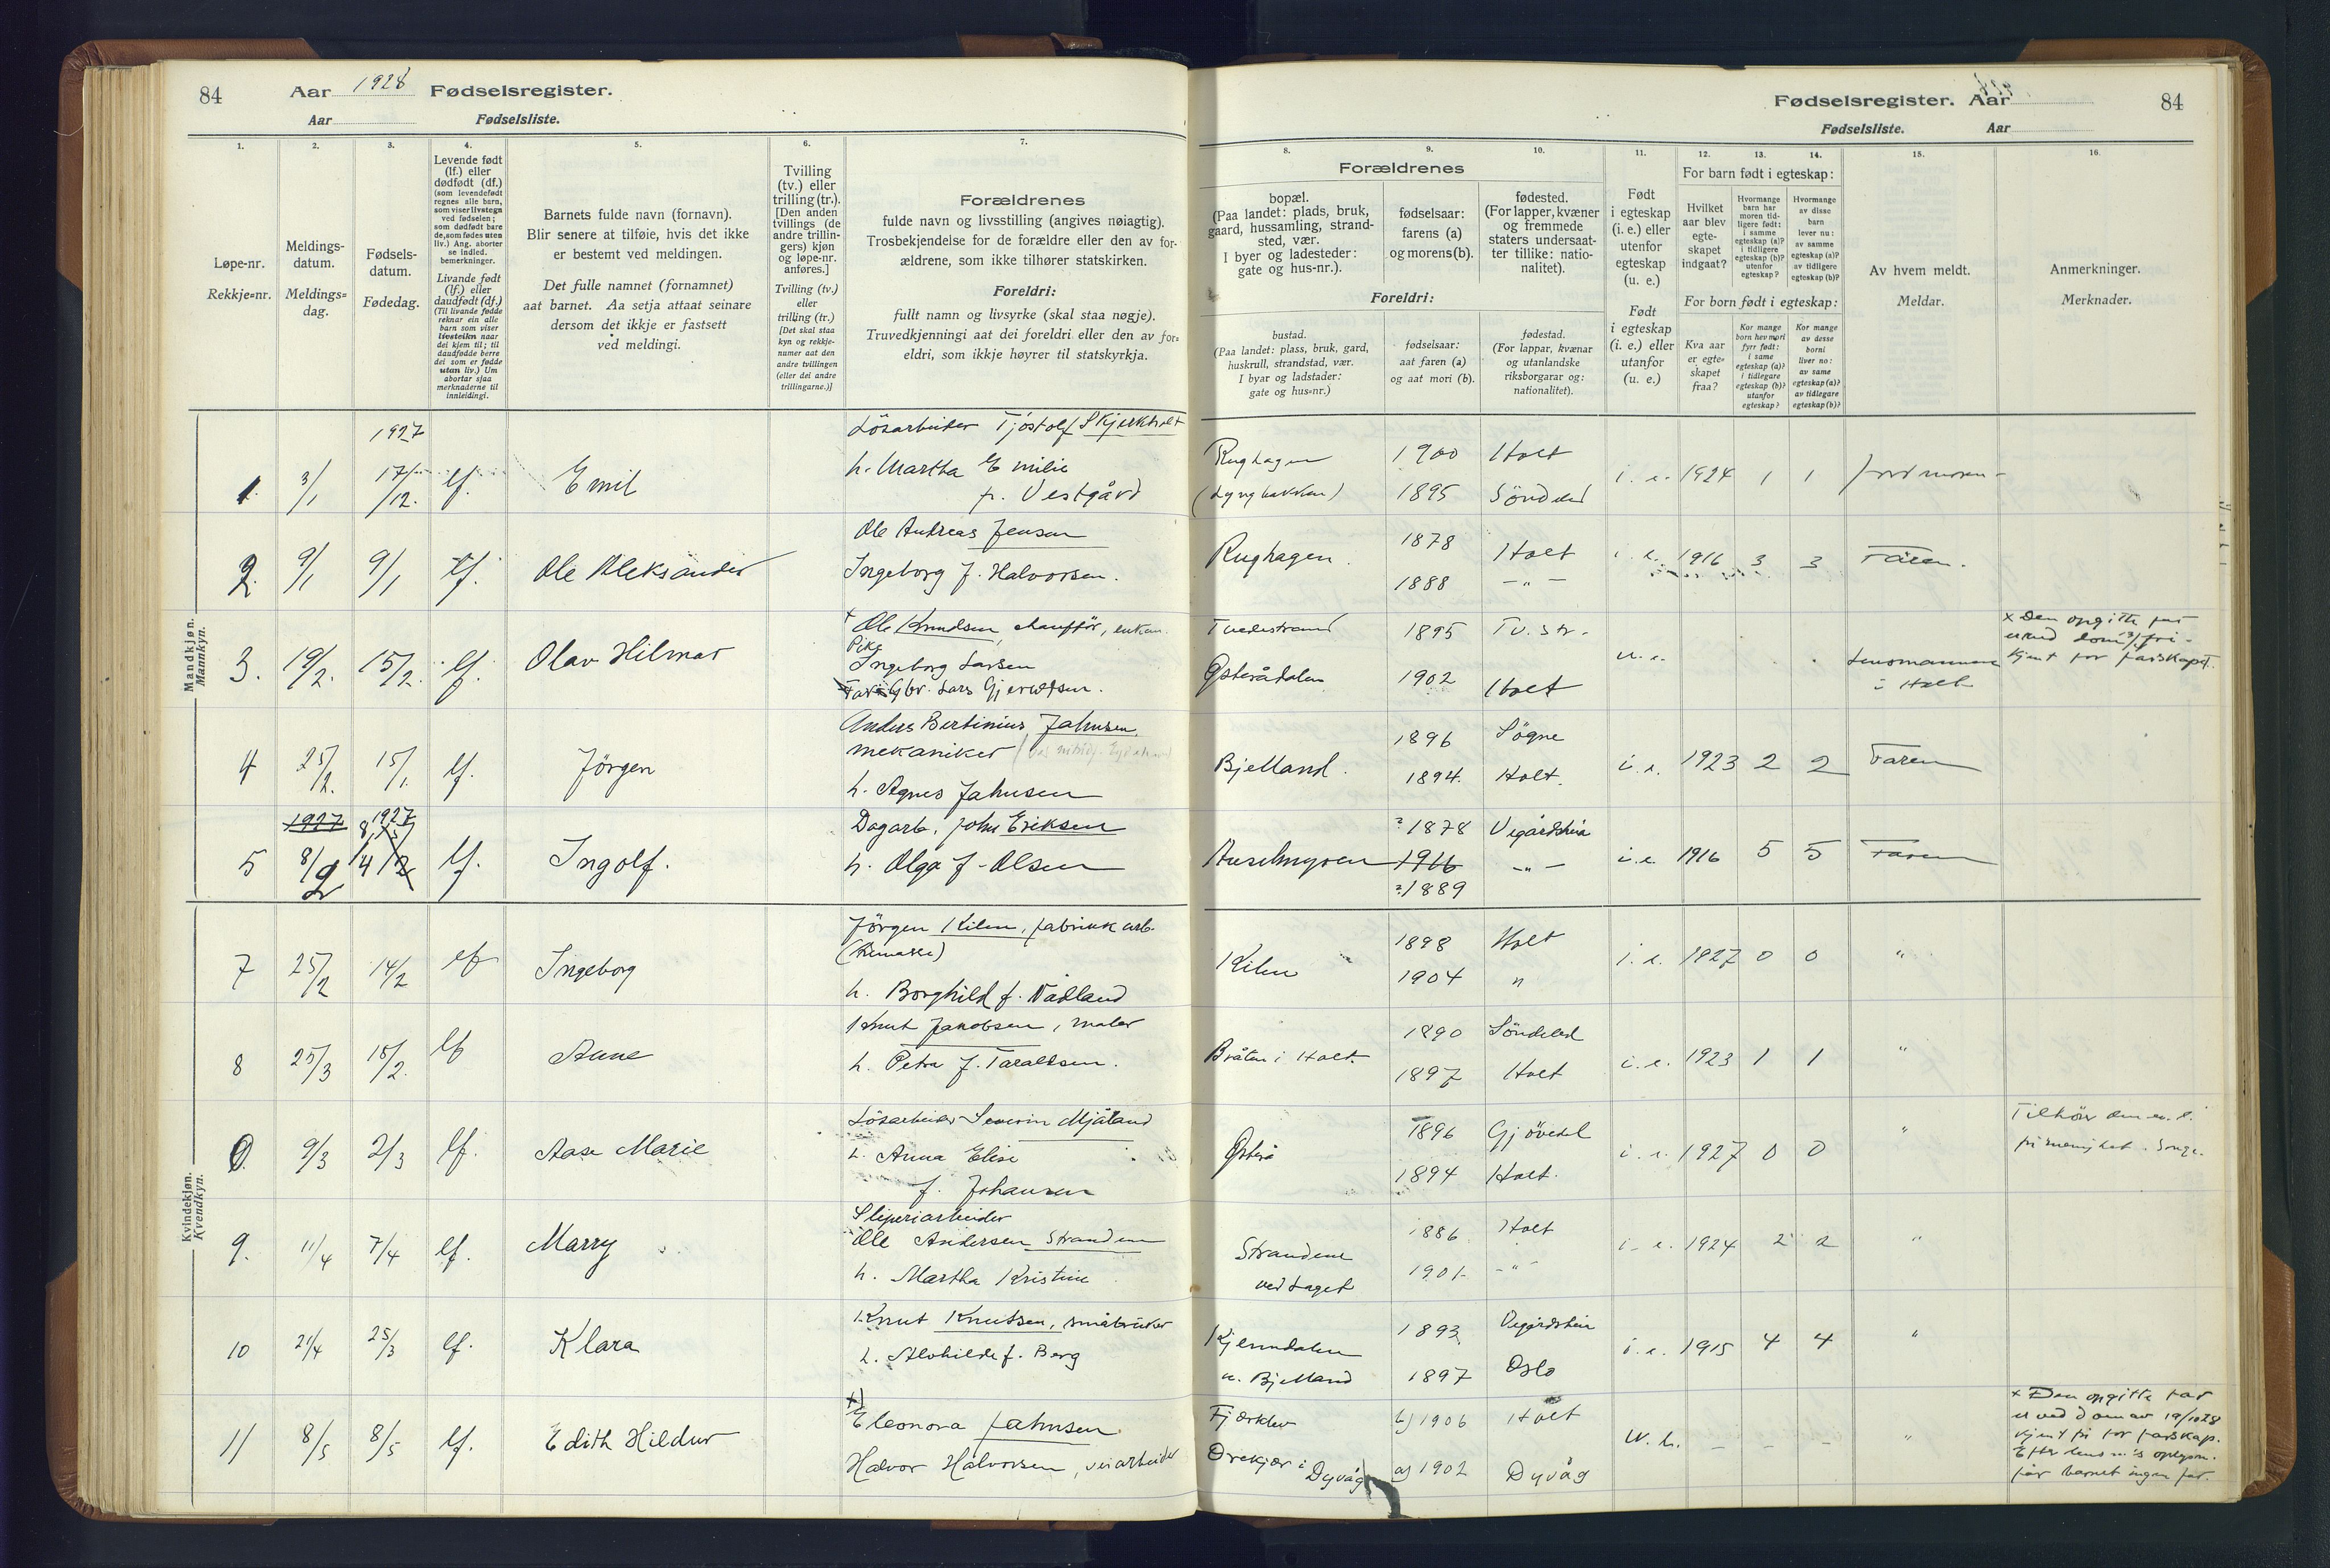 84 Aar 1928 Fødselsregister.
Aar Fødselsliste.
Fødselsregister. Aar 84
Fødselsliste. Aar
1. 2. 3. 4. 5. 6. 7. 8. 9. 10. 11. 12. 13. 14. 15. 16.
Løpe-nr.
Rekkje-nr.
Meldings-
datum.
Meldings-
dag.
Fødsels-
datum.
Fødedag.
Levende født
(lf.) eller
dødfødt (df.)
(som levendefødt
regnes alle barn,
som viser livstegn
ved fødselen;
som dødfødt bare
de, som fødes uten
liv.) Ang. aborter
se indled.
bemerkninger.
Livande født
(lf.) eller
daudfødt (df.)
(Til livande fødde
reknar ein alle
barn som viser
livsteikn naar
dei kjem til; til
daudfødde berre
dei som er fødde
utan liv.) Um
abortar sjaa
merknaderne til
innleidingi.
Barnets fulde navn (fornavn).
Blir senere at tilføie, hvis det ikke
er bestemt ved meldingen.
Det fulle namnet (fornamnet)
aat barnet. Aa setja attaat seinare
dersom det ikkje er fastsett
ved meldingi.
Tvilling
(tv.) eller
trilling (tr.).
[Den anden
tvillings (de
andre trillin-
gers) kjøn
og løpe-nr.
anføres.]
Tvilling (tv.)
eller
trilling (tr.)
[Det skal staa
kyn og rekkje-
numer aat den
andre tvillingen
(eller dei andre
trillingarne.)]
Forældrenes
fulde navn og livsstilling (angives nøiagtig).
Trosbekjendelse for de forældre eller den av for-
ældrene, som ikke tilhører statskirken.
Foreldri:
fullt namn og livsyrke (skal staa nøgje).
Truvedkjenningi aat dei foreldri eller den av for-
eldri, som ikkje høyrer til statskyrkja.
Forældrenes
bopæl.
(Paa landet: plads, bruk,
gaard, hussamling, strand-
sted, vær.
I byer og ladesteder:
gate og hus-nr.).
fødselsaar:
farens (a)
og morens (b).
fødested.
(For lapper, kvæner
og fremmede
staters undersaat-
ter tillike: natio-
nalitet).
Foreldri:
bustad.
(Paa landet: plass, bruk, gard,
huskrull, strandstad, vær.
I byar og ladstader:
gate og hus-nr.)
fødselsaar:
aat faren (a)
og aat mori (b).
fødestad.
(For lappar, kvænar
og utanlandske
riksborgarar og:
nationalitet).
Født
i egteskap
(i. e.) eller
utenfor
egteskap
(u. e.)
Født
i egteskap
(i. e.) eller
utanfor
(u. e.)
For barn født i egteskap:
Hvilket
aar blev
egte-
skapet
indgaat?
Hvormange
barn har
moren tid-
ligere født:
i samme
egteskap (a)?
i tidligere
egteskap (b)?
utenfor
egteskap?
Hvormange
av disse
barn
lever nu:
av samme
egteskap (a)?
av tidligere
egteskap (b)?
For born født i egteskap:
Kva aar
er egte-
skapet
fraa?
Kor mange
born hev mori
fyrr født:
i same
egteskap (a)?
i tidlegare
egteskap (b)?
utanfor
egteskap?
Kor mange
av desse
borni
liver no:
av same
egteskap (a)?
av tidlegare
egteskap (b)?
Av hvem meldt.
Meldar.
Anmerkninger.
Merknader.
Mandkjøn.
Mannkyn.
1927
Løsarbeider Tjöstolf Skjerkholt
1. 3/1 17/12. lf. Emil h. Martha Emilie
f. Vestgård
Rughagen 1900 Holt
(Lyngbakken) 1895 Söndeled
i. e. 1924 1 1 jordmoren
2. 9/1 9/1 lf. Ole Aleksander
Ole Andreas Jensen
Ingeborg f. Halvorsen.
Rughagen. 1878 Holt
1888 – " –
i. e. 1916 3 3 Faren.
3. 19/2. 15/2. lf. Olav Hilmar
+ Ole Knudsen, chaufför,
Pike
Ingeborg Larsen
Gbr. Lars Gjeruldsen.
Tvedestrand 1895 Tv.str.
Østerådalen 1902 Holt
u. e.
Lensmannen
i Holt
x Den opgitte far
er ved dom fri-
kjent for farskapet.
4 25/2. 15/1. lf. Jörgen
Anders Bertinius Jahnsen
mekaniker
h. Agnes Jahnsen
Bjelland. 1896 Søgne
1894. Holt.
i. e. 1923 2 2 Faren
1927 1927
5 8/2 lf. Ingolf.
Dagarb. John Eriksen
h. Olga f. Olsen
?1878 Vegårdshei
1916 – " –
?1889
i. e. 1916 5 5 Faren
Kvindekjøn.
Kvendkyn.
7 25/2 14/2 lf Ingeborg
Jörgen Kilen, fabrikkarb.
h. Borghild f. Vadland
Kilen 1898 Holt
1904 "
i. e. 1927 0 0 "
8 25/3 15/2. lf Anne
Knut Jakobsen, maler
h. Petra f. Taraldsen.
Bråten i Holt. 1890 Söndeled
1897 Holt
i. e. 1923 1 1 "
9/3 2/3 lf. Aase Marie
Løsarbeider Severin Mjåland
h. Anna Elise
f. Johansen
Østerå 1896 Gjövdal
1894 Holt.
i. e. 1927 0 0 "
Tilhörer den ev. l.
frimenighet. Songe.
9. 11/4 7/4 lf. Marry
Sliperiarbeider
Ole Andersen Strandene
h. Martha Kristine
Strandene 1886 Holt
ved Laget 1901 – " –
i. e. 1924 2 2 "
10 21/4 25/3 lf. Klara
Knut Knutsen, småbruker
h. Alvhilde f. Berg
Kjenndalen 1893 Vegårdshei
u. Bjelland 1897 Oslo
i. e. 1915 4 4 "
11 8/5 8/5 lf. Edith Hildur
x)
Eleonora Jahnsen
Halvor Halvorsen, veiarbeider
Fjærkleiv b) 1906 Holt
Orekjær i Dyvåg a) 1902 Dyvåg
u. e. – – – "
x Den opgitte far
er ved dom av 19/10 28
kjent fri for farskap.
Efter lensm's oplysn.
får barnet ingen far.